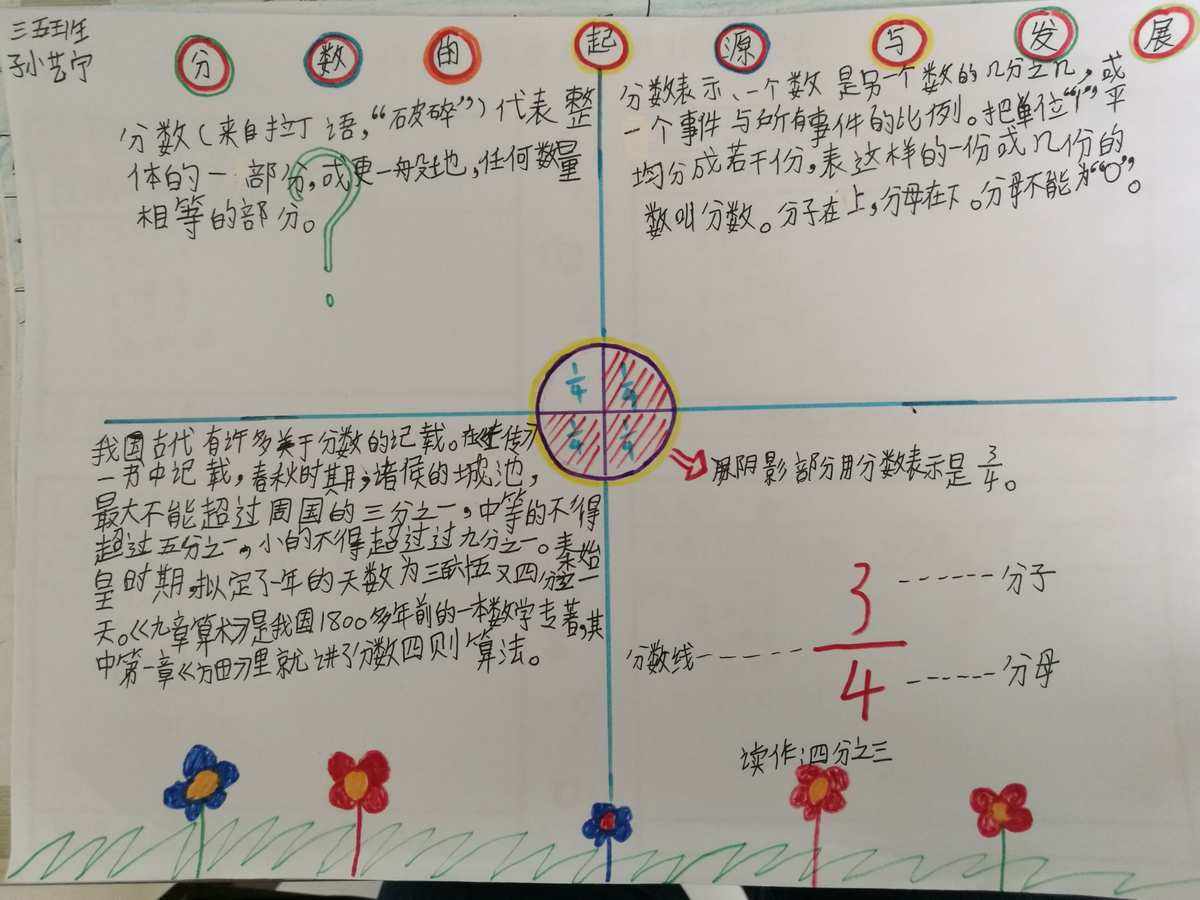 三五班
孙艺宁
分数由起源与发展
分数(来自拉丁语,“破碎”)代表整
体的一部分,或更一般地,任何数量
相等的部分。
分数表示、一个数是另一个数的几分之几,或
一个事件与所有事件的比例。把单位“1”平
均分成若干份,表这样的一份或几份的
数叫分数。分子在上,分母在下。分母不能为“0”。
1/4
1/4
1/4
1/4
我国古代有许多关于分数的记载。在《左传》
一书中记载,春秋时其月,诸侯的城池,
最大不能超过周国的三分之一,中等的不得
超过五分之一,小的不得超过过九分之一。秦始
皇时期,拟定了一年的天数为三百六十五又四分之一
天。《九章算术》是我国1800多年前的一本数学专著,其
中第一章《方田》里就讲了分数四则算法。
阴影部分用分数表示是3/4。
3
4
分子
分数线
分母
读作:四分之三